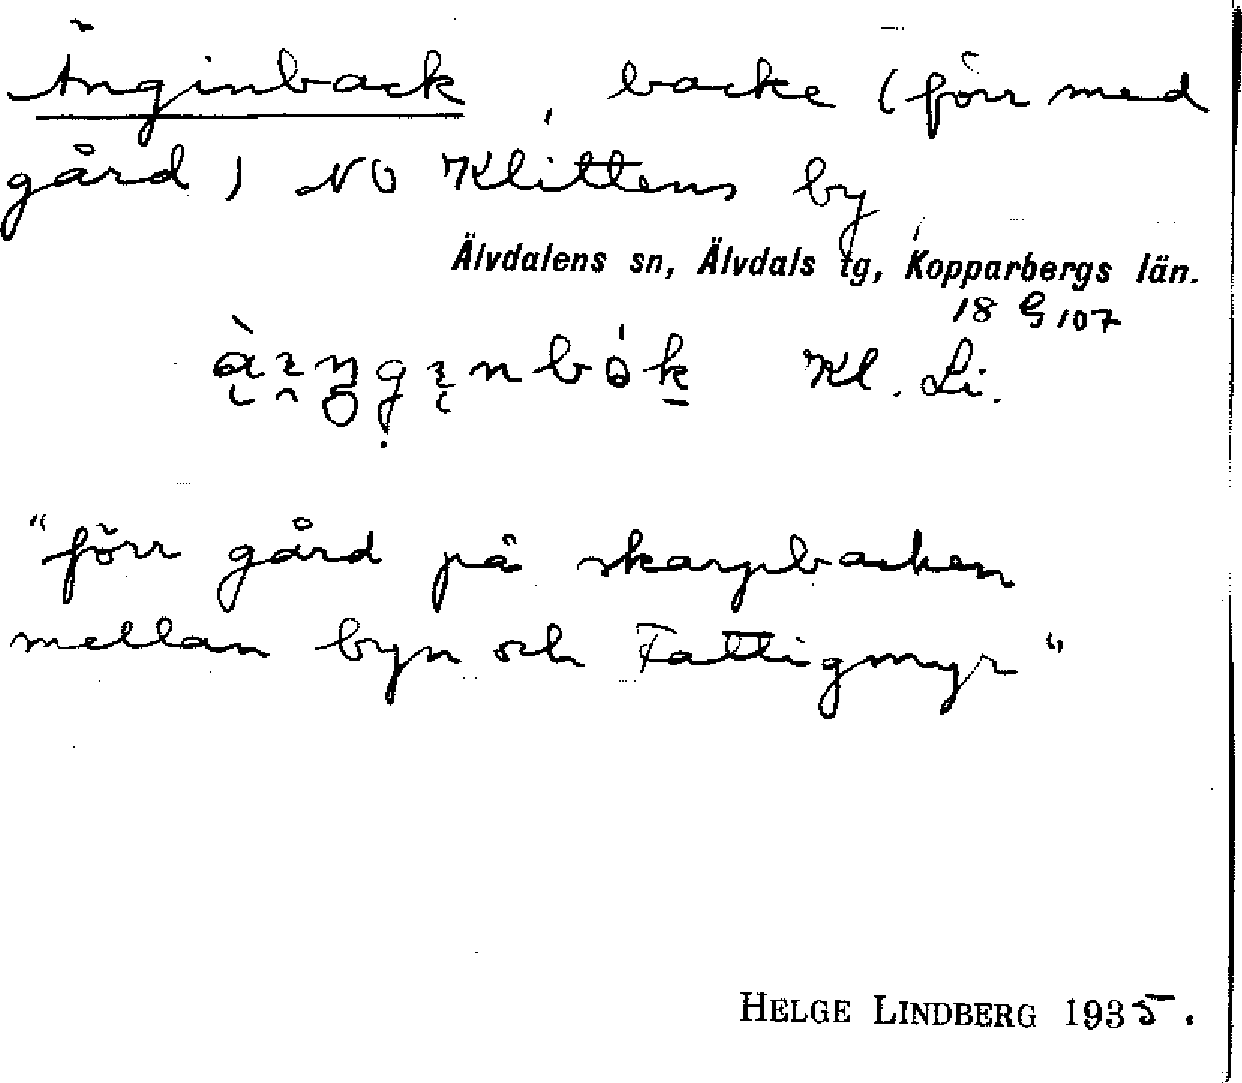 Änginback, backe (förr med
gård) NO Klittens by
Älvdalens sn, Älvdals tg, Kopparbergs län.
18 G 107
Kl. Li.
"förr gård på skarpbacken
mellan byn och Fattigmyr"
HELGE LINDBERG 1935.